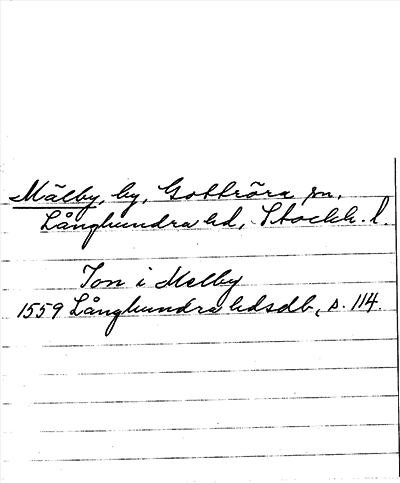 Mälby, by, Gottröra sn,
Långhundra hd, Stockh. l.
Jon i Melby
1559 Långhundra hdsdb, s. 114.